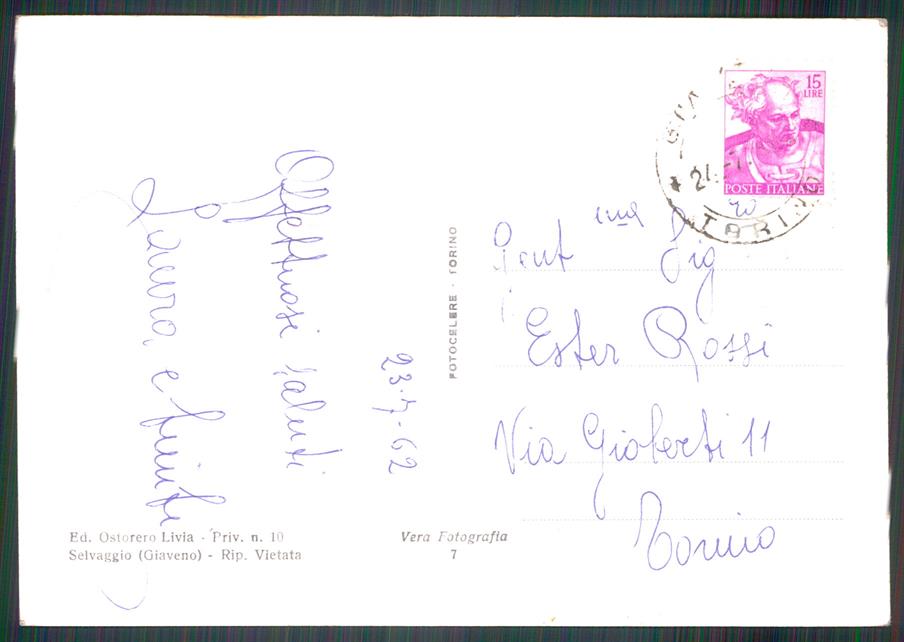 23-7-62
Affettuosi saluti
Laura e
Ed. Ostorero Livia - Priv. n. 10
Selvaggio (Giaveno) - Rip. Vietata
Vera Fotografia
7
FOTOCELERE - TORINO
15
LIRE
POSTE ITALIANE
Gent ma Sig
Ester Rossi
Via Gioberti 11
Torino